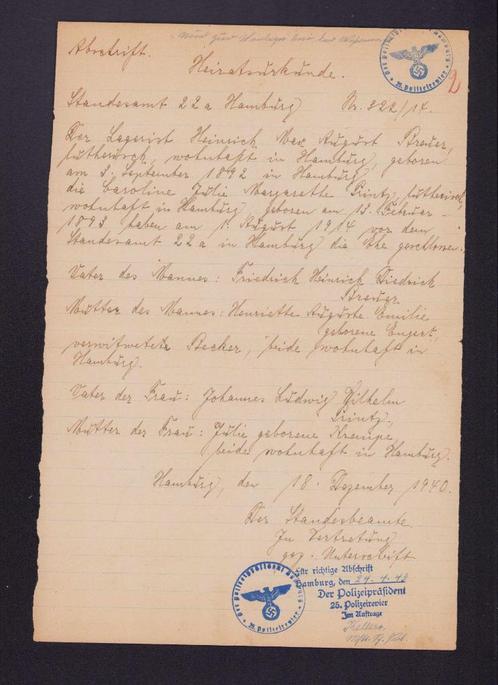 Abschrift.
Heiratsurkunde.
2
Standesamt 22a Hamburg Nr. 322/14.
Der Lagerist Heinrich Max August Breuer,
lutherisch, wohnhaft in Hamburg, geboren
am 3. September 1892 in Hamburg
die Caroline Julie Margarethe Printz, lutherisch,
wohnhaft in Hamburg geboren am 13. Februar
1893 haben am 1. August 1914 vor dem
Standesamt 22a in Hamburg die Ehe geschlossen.
Vater des Mannes: Friedrich Heinrich Diedrich
Breuer
Mutter des Mannes: Henriette Auguste Emilie
geborene Engert,
verwitwete Becker, beide wohnhaft in
Hamburg.
Vater der Frau: Johannes Ludwig Wilhelm
Printz,
Mutter der Frau: Julie geborene Krempe
beide wohnhaft in Hamburg.
Hamburg, den 18. Dezember 1940.
Der Standesbeamte
In Vertretung
gez. Unterschrift
Für richtige Abschrift
Hamburg, den
Der Polizeipräsident
25. Polizeirevier
Im Auftrage